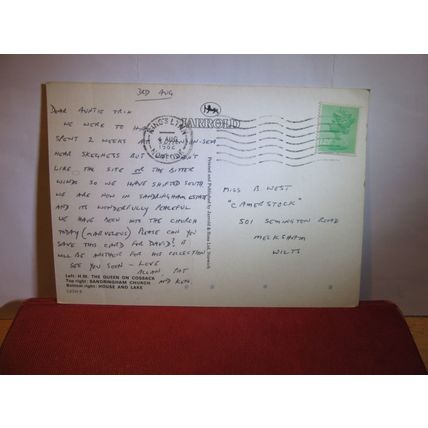 3RD AUG
DEAR AUNTIE TRIX
WE WERE TO
SPENT 2 WEEKS AT -ON-SEA
NEAR SKEGNESS BUT
LIKE THE SITE OR THE BITTER
WINDS SO WE HAVE SHIFTED SOUTH
WE ARE NOW IN SANDRINGHAM ESTATE
AND ITS WONDERFULLY PEACEFUL
WE HAVE BEEN INTO THE CHURCH
TODAY (MARVELOUS) PLEASE CAN YOU
SAVE THIS CARD FOR DAVID? IT
WILL BE ANOTHER FOR HIS COLLECTION
SEE YOU SOON - LOVE
ALLAN, PAT
AND KETH.
Left: H.M. THE QUEEN ON COSSACK
Top right: SANDRINGHAM CHURCH
Bottom right: HOUSE AND LAKE
JARROLD
Printed and Published by Jarrold & Sons Ltd, Norwich
KING'S LYNN
4 AUG
1982
NORFOLK
MISS B. WEST
"CAMERSTOCK"
501 SEMINGTON ROAD
MELKSHAM
WILTS